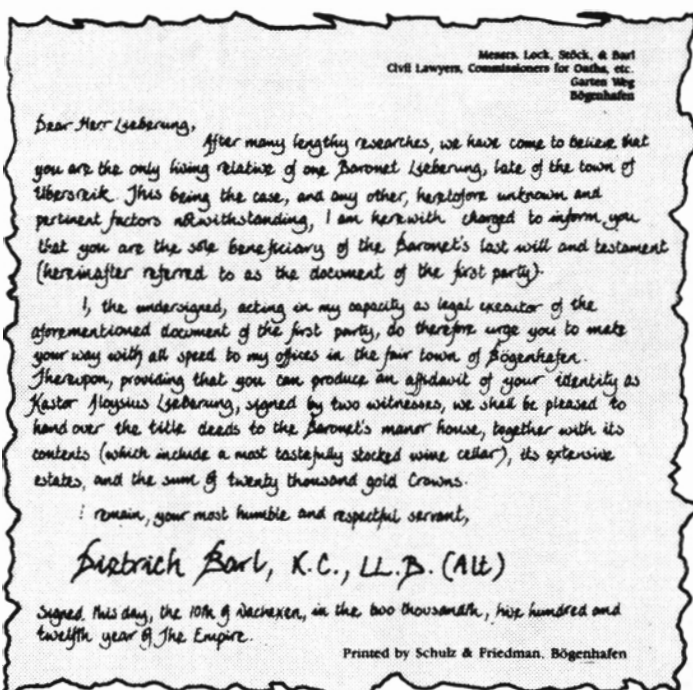 Messrs. Lock, Stöck, & Barl
Civil Lawyers, Commissioners for Oaths, etc.
Garten Weg
Bögenhafen
Dear Herr Lieberung,
After many lengthy researches, we have come to believe that
you are the only living relative of one Baronet Lieberung, late of the town of
Ubersreik. This being the case, and any other, heretofore unknown and
pertinent factors notwithstanding, I am herewith charged to inform you
that you are the sole beneficiary of the Baronet's last will and testament
(hereinafter referred to as the document of the first party).
I, the undersigned, acting in my capacity as legal executor of the
aforementioned document of the first party, do therefore urge you to make
your way with all speed to my offices in the fair town of Bögenhafen.
Thereupon, providing that you can produce an affidavit of your identity as
Kastor Aloysius Lieberung, signed by two witnesses, we shall be pleased to
hand over the title deeds to the Baronet's manor house, together with its
contents (which include a most tastefully stocked wine cellar), its extensive
estates, and the sum of twenty thousand gold Crowns.
I remain, your most humble and respectful servant,
Dietrich Barl, K.C., LL.B. (Alt)
Signed this day, the 10th of Nachexen, in the two thousandth, five hundred and
twelfth year of The Empire.
Printed by Schulz & Friedman, Bögenhafen